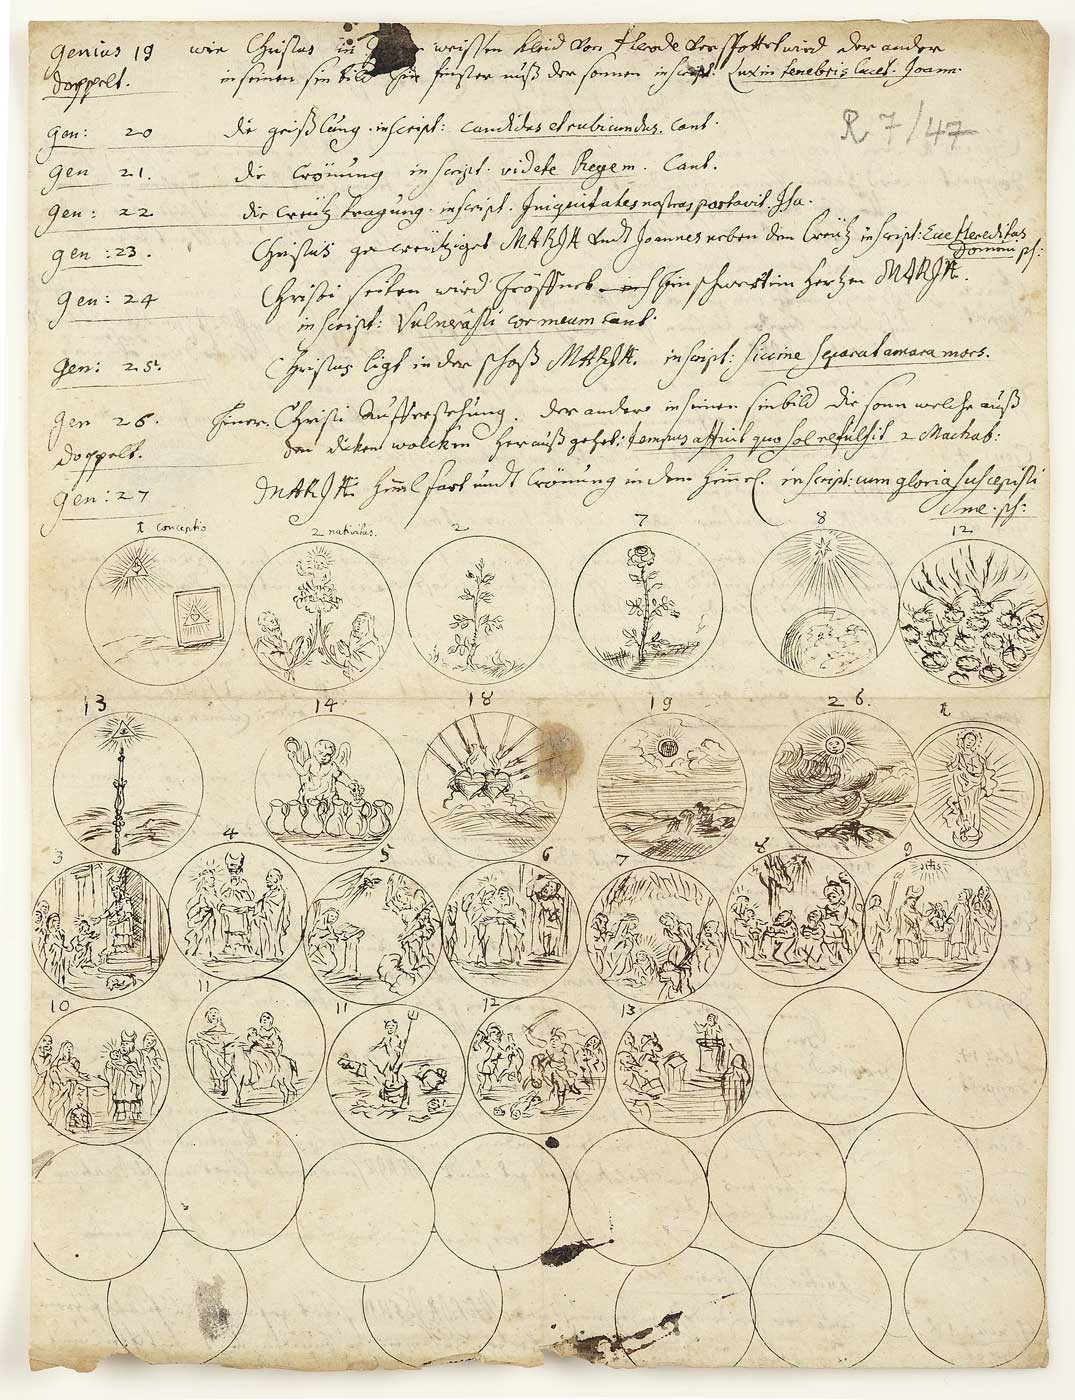 Genius 19 wie Christus in weissen kleid von Herode verspottet wird der ander
doppelt. in seinen sinbild die finster nuß der sonnen inscript. Lux in tenebris lucet. Joann.
R 7/47
gen: 20 die geißlung. inscript: candidus et rubicundus. Cant.
gen 21. die Crönung inscript. videte Regem. Cant.
gen: 22 die Creütz tragung. inscript. Iniquitates nostras portavit. Isa.
gen: 23. Christus gecreütziget MARIA undt Joannes neben den Creütz inscript: Eue Hereditas
Domini ps:
gen: 24 Christi seiten wird eröffnet ein schwert im hertzen MARIA.
inscript: Vulnerasti cor meum Cant.
gen: 25. Christus ligt in der schoß MARIA. inscript: siccine separat amara mors.
gen 26. einer. Christi Aufferstehung. der ander in seinen sinbild die sonn welche auß
doppelt. den dicken wolcken herauß gehet: tempus affuit quo sol refulsit 2 Machab:
gen: 27 MARIA himmelfart undt Crönung in dem himmel. inscript: cum gloria suscepisti
me. ps:
1 conceptio 2 nativitas. 2 7 8 12
13 14 18 19 26. 1
3 4 5 6 7 8 9
10 11 11 12 13